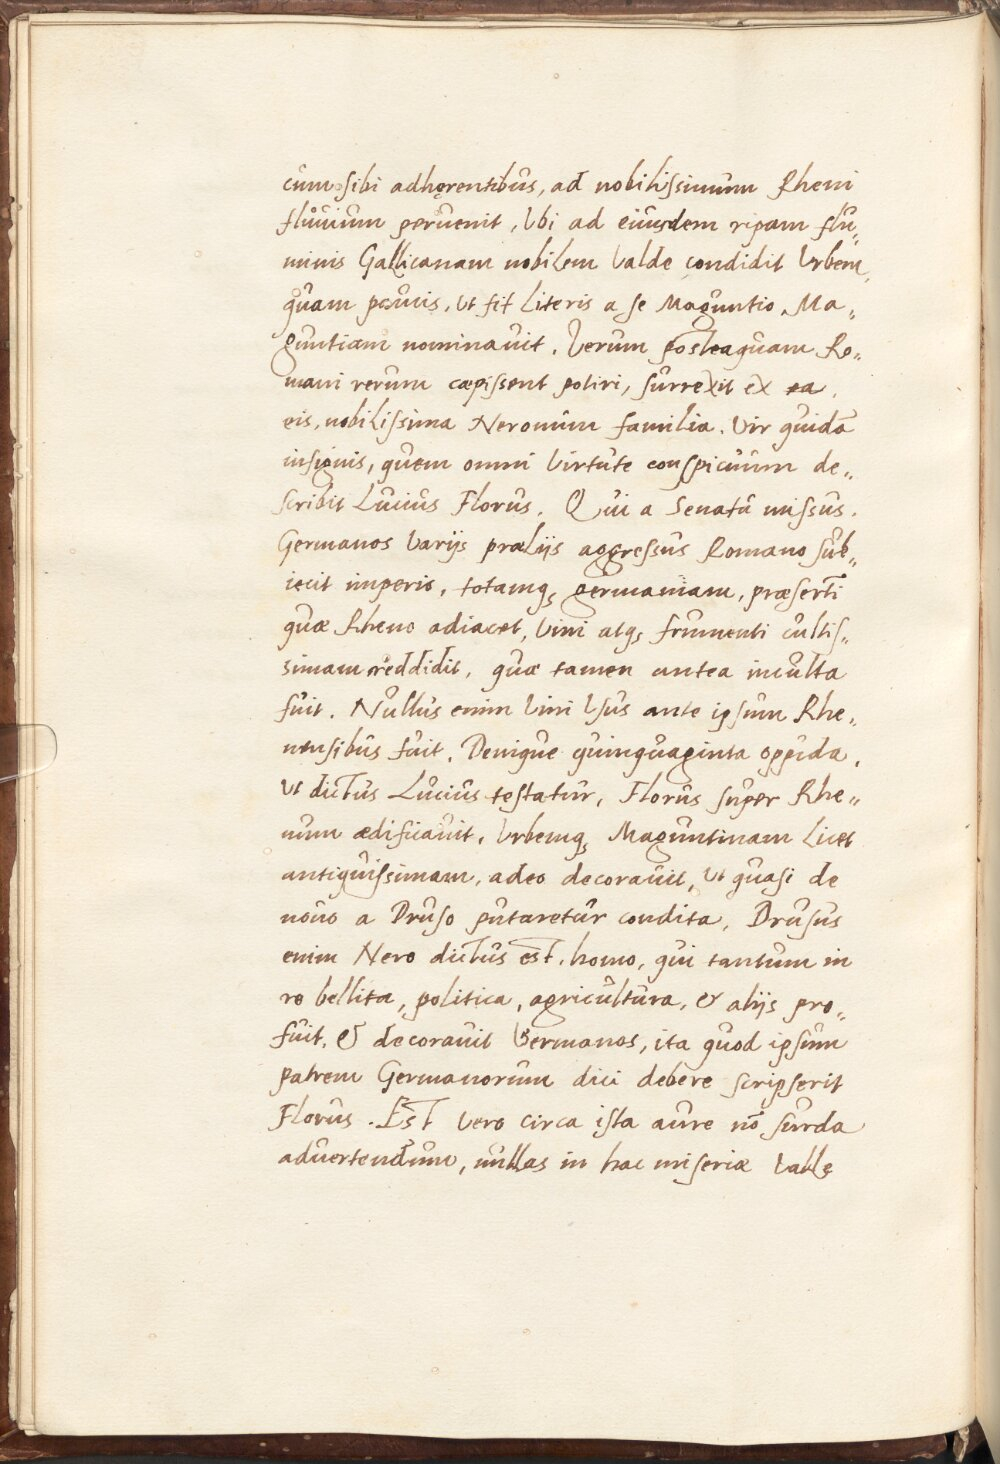 cum sibi adhęrentibus, ad nobilissimum Rheni
fluuium peruenit, Vbi ad eiusdem ripam flu„
minis Gallicanam nobilem Valde condidit Vrbem,
quam paucis, ut fit literis a se Maguntio, Ma„
guntiam nominauit. Verum posteaquam Ro„
mani rerum cœpissent potiri, surrexit ex ea.
eis, nobilissima Neronum familia. Vir quidā
insignis, quem omni Virtute conspicuum de„
scribit Lucius Florus. Qui a Senatu missus.
Germanos Varijs prælijs aggressus Romano sub„
iecit imperio, totamq; germaniam, præsertī
quæ Rheno adiacet, Vini atq; frumenti cultis„
simam reddidit, quæ tamen antea inculta
fuit. Nullus enim Vini Vsus ante ipsum Rhe„
nensibus fuit. Denique quinquaginta oppida.
Ut dictus Lucius testatur, Florus super Rhe„
num ædificauit, Vrbemq; Maguntinam Licet
antiquissimam, adeo decorauit, ut quasi de
nouo a Druso putaretur condita, Drusus
enim Nero dictus est, homo, qui tantum in
re bellita, politica, agricultura, & alijs pro„
fuit, & decorauit Germanos, ita quod ipsum
patrem Germanorum dici debere scripserit
Florus. Est vero circa ista aure nō surda
aduertendum, nullas in hac miseriæ Valle